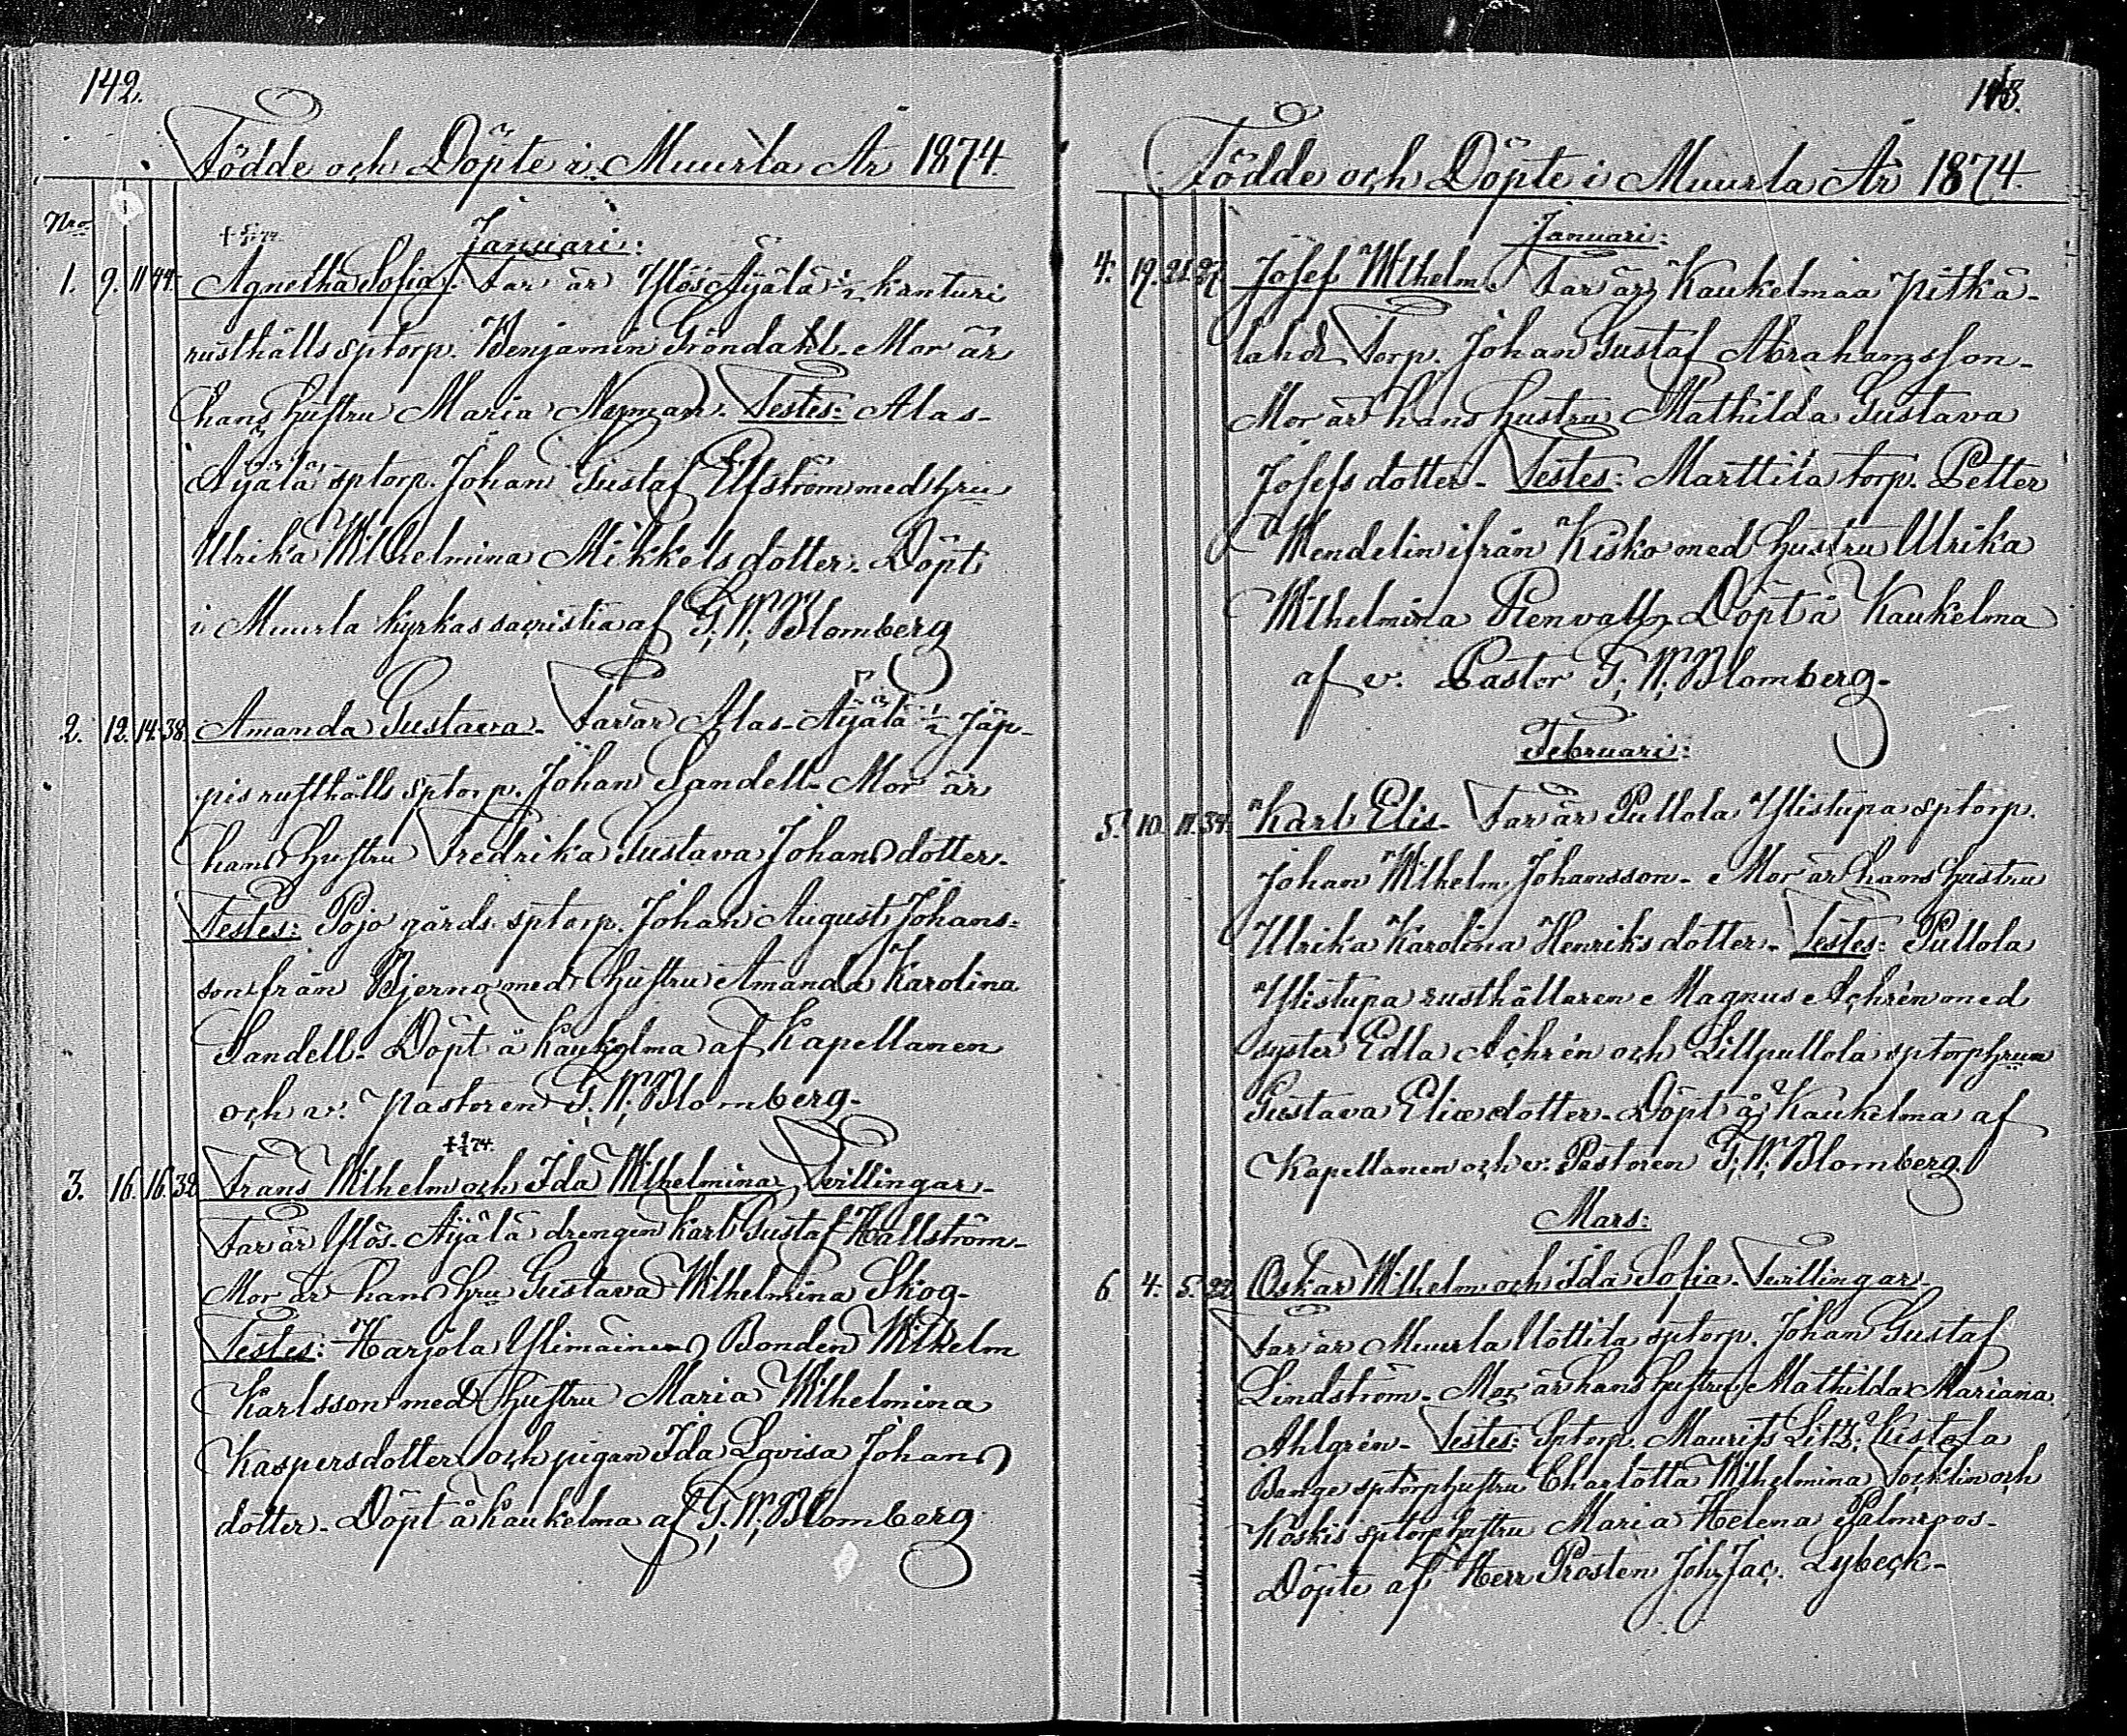 142.
Födde och Döpte i Muurla År 1874.
Nro
Januari:
1. 9. 11. 44. Agnetha Sofia. Far är Ylös Äijälä ½ kanturi
rusthålls sptorp. Benjamin Gröndahl. Mor är
hans hustru Maria Nyman. Testes: Alas-
Äijälä sptorp. Johan Gustaf Elfström med hru
Ulrika Wilhelmina Mikkelsdotter. Döpt
i Muurla kyrkas sacristia af G. W. Blomberg
2. 12. 14. 38. Amanda Gustava. Far är Alas-Äijälä ½ Jäp-
pis rusthålls sptorp. Johan Sandell. Mor är
hans hustru Fredrika Gustava Johansdotter.
Testes: Pojo gårds sptorp. Johan August Johans=
son från Bjerno med hustru Amanda Karolina
Sandell. Döpt å Kaukelma af Kapellanen
och v. Pastoren G. W. Blomberg.
74.
3. 16. 16. 32. Frans Wilhelm och Ida Wilhelmina, Tvillingar.
Far är Ylös-Äijälä drengen Karl Gustaf Hallström.
Mor är hans hru Gustava Wilhelmina Skog.
Testes: Harjola Ylimäinen Bonden Wilhelm
Karlsson med hustru Maria Wilhelmina
Kaspersdotter och pigan Ida Lovisa Johans
dotter. Döpt å Kaukelma af G. W. Blomberg
143.
Födde och Döpte i Muurla År 1874.
Januari:
4. 19. 21. 27. Josef Wilhelm. Far är Kaukelmaa Pitkä-
lahdi Torp. Johan Gustaf Abrahamsson.
Mor är hans hustru Mathilda Gustava
Josefsdotter. Testes: Marttila torp. Petter
Wendelin ifrån Kisko med hustru Ulrika
Wilhelmina Renvall. Döpt å Kaukelma
af v. Pastor G. W. Blomberg.
Februari:
5. 10. 11. 34. Karl Elis. Far är Pullola Ylistupa sptorp.
Johan Wilhelm Johansson. Mor är hans hustru
Ulrika Karolina Henriksdotter. Testes: Pullola
Ylistupa rusthållaren Magnus Achrén med
syster Edla Achrén och Lillpullola sptorphrun
Gustava Eliædotter. Döpt å Kaukelma af
Kapellanen och v. Pastoren G. W. Blomberg.
Mars:
6 4. 5. 22. Oskar Wilhelm och Ida Sofia. Tvillingar.
Far är Muurla Uottila sptorp. Johan Gustaf
Lindström. Mor är hans hustru Mathilda Mariana
Ahlgrén. Testes: Sptorp. Maurits Litz. Kistola
Bange sptorphustru Charlotta Wilhelmina och
Koskis sptorphustru Maria Helena Palmroos.
Döpte af Herr Prosten Joh. Jac. Lybeck.